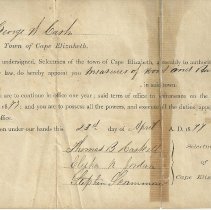 George W. Cash
Town of Cape Elizabeth.
undersigned, Selectmen of the town of Cape Elizabeth,
law, do hereby appoint you measurer of wood and
in said town.
are to continue in office one year; said term of office to commence on the
and you are to possess all the powers, and execute all the duties
office.
under our hands this 23d day of April A. D. 18
Thomas B. Haskell
Elisha N. Jordan
Stephen Scamman
Selectmen
of
Cape Eliz